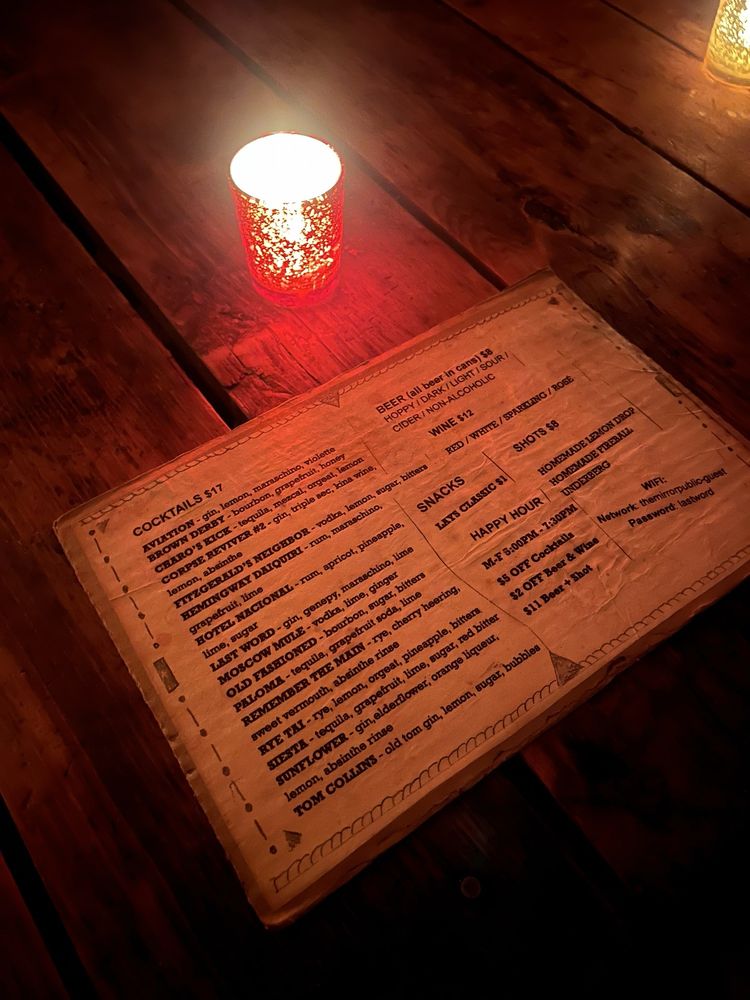 COCKTAILS $17
AVIATION - gin, lemon, maraschino, violette
BROWN DERBY - bourbon, grapefruit, honey
CHARO'S KICK - tequila, mezcal, orgeat, lemon
CORPSE REVIVER #2 - gin, triple sec, kina wine,
lemon, absinthe
FITZGERALD'S NEIGHBOR - vodka, lemon, sugar, bitters
HEMINGWAY DAIQUIRI - rum, maraschino,
grapefruit, lime
HOTEL NACIONAL - rum, apricot, pineapple,
lime, sugar
LAST WORD - gin, genepy, maraschino, lime
MOSCOW MULE - vodka, lime, ginger
OLD FASHIONED - bourbon, sugar, bitters
PALOMA - tequila, grapefruit soda, lime
REMEMBER THE MAIN - rye, cherry heering,
sweet vermouth, absinthe rinse
RYE TAI - rye, lemon, orgeat, pineapple, bitters
SIESTA - tequila, grapefruit, lime, sugar, red bitter
SUNFLOWER - gin, elderflower, orange liqueur,
lemon, absinthe rinse
TOM COLLINS - old tom gin, lemon, sugar, bubbles
BEER (all beer in cans) $8
HOPPY / DARK / LIGHT / SOUR /
CIDER / NON-ALCOHOLIC
WINE $12
RED / WHITE / SPARKLING / ROSÉ
SNACKS
LAYS CLASSIC $1
SHOTS $8
HOMEMADE LEMON DROP
HOMEMADE FIREBALL
UNDERBERG
HAPPY HOUR
M-F 5:00PM - 7:30PM
$5 OFF Cocktails
$2 OFF Beer & Wine
$11 Beer + Shot
WIFI:
Network: themirrorpublic-guest
Password: lastword